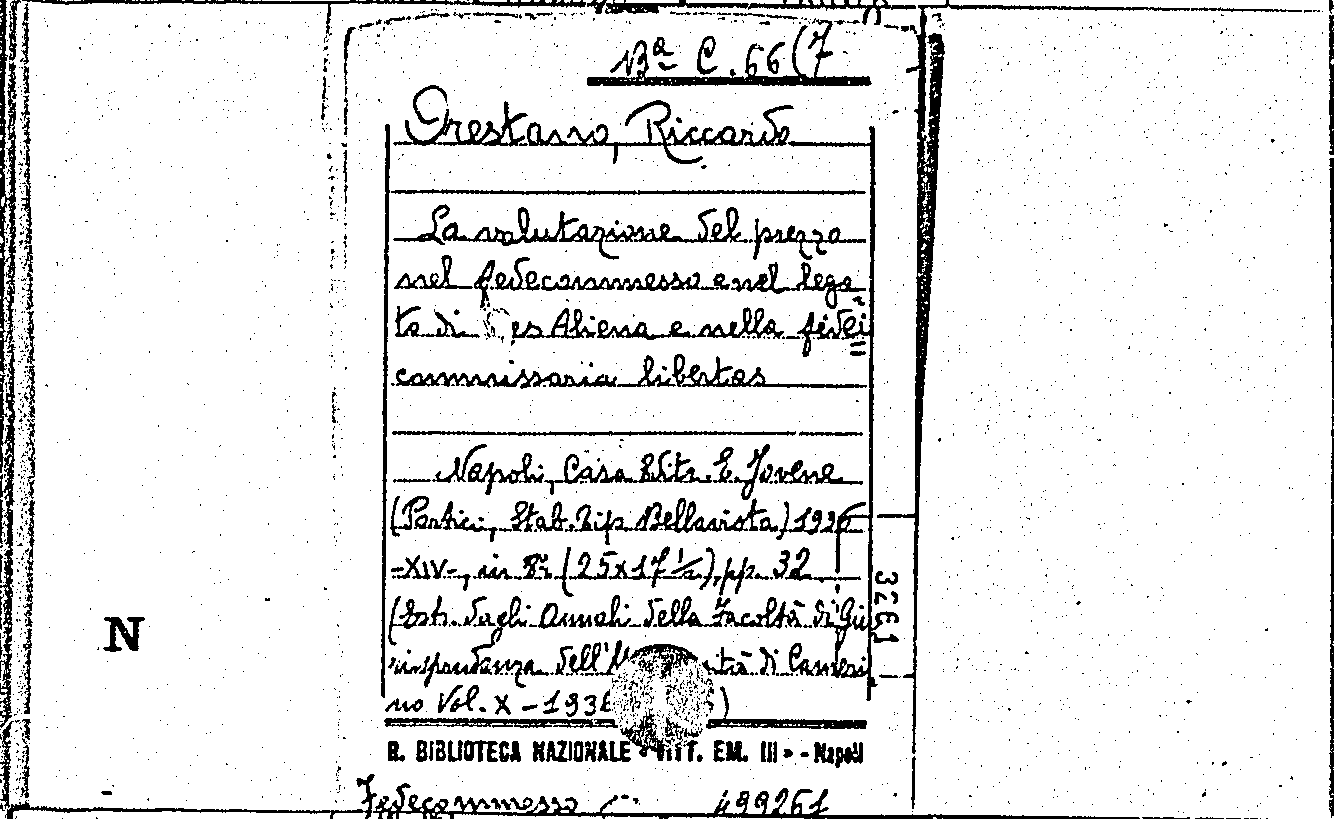 Bª C. 66(7
Orestano, Riccardo
La valutazione del prezzo
nel fedecommesso e nel lega
to di res Aliena e nella fidei
commissaria libertas
Napoli, Casa Edit. E. Jovene
(Portici, Stab. Tip. Bellavista) 1936
-XIV-, in 8° (25x17 ½), pp. 32
(Estr. dagli Annali della Facoltà di Giu
risprudenza dell' di Cameri
no Vol. X - 1936
3261
N
R. BIBLIOTECA NAZIONALE « VITT. EM. III » - Napoli
Fedecommesso 499261